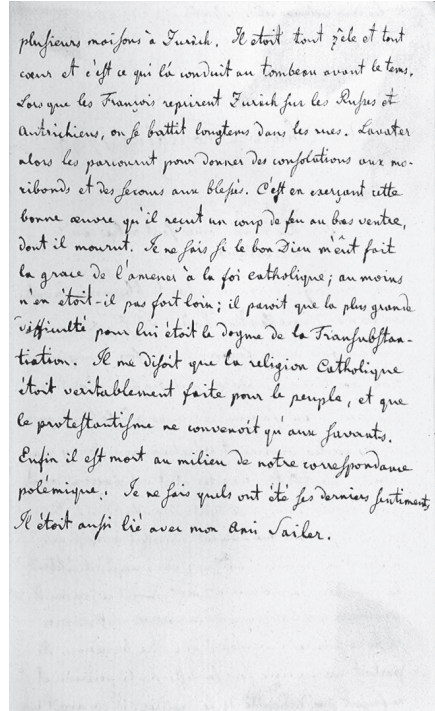 plusieurs maisons à Zurich. Il étoit tout zêle et tout
cœur et c'est ce qui l'a conduit au tombeau avant le tems.
Lorsque les François reprirent Zurich sur les Russes et
Autrichiens, on se battit longtems dans les rues. Lavater
alors les parcourut pour donner des consolutions aux mo-
ribonds et des secours aux blessés. C'est en exerçant cette
bonne œuvre qu'il reçut un coup de feu au bas ventre,
dont il mourut. Je ne sais si le bon Dieu m'eût fait
la grace de l'amener à la foi catholique; au moins
n'en étoit-il pas fort loin; il paroit que la plus grande
difficulté pour lui étoit le dogme de la Transubstan-
tiation. Il me disoit que la religion Catholique
étoit veritablement faite pour le peuple, et que
le protestantisme ne convenoit qu'aux savants.
Enfin il est mort au milieu de notre correspondance
polémique. Je ne sais quels ont été ses derniers sentiments,
Il étoit aussi lié avec mon Ami Sailer.